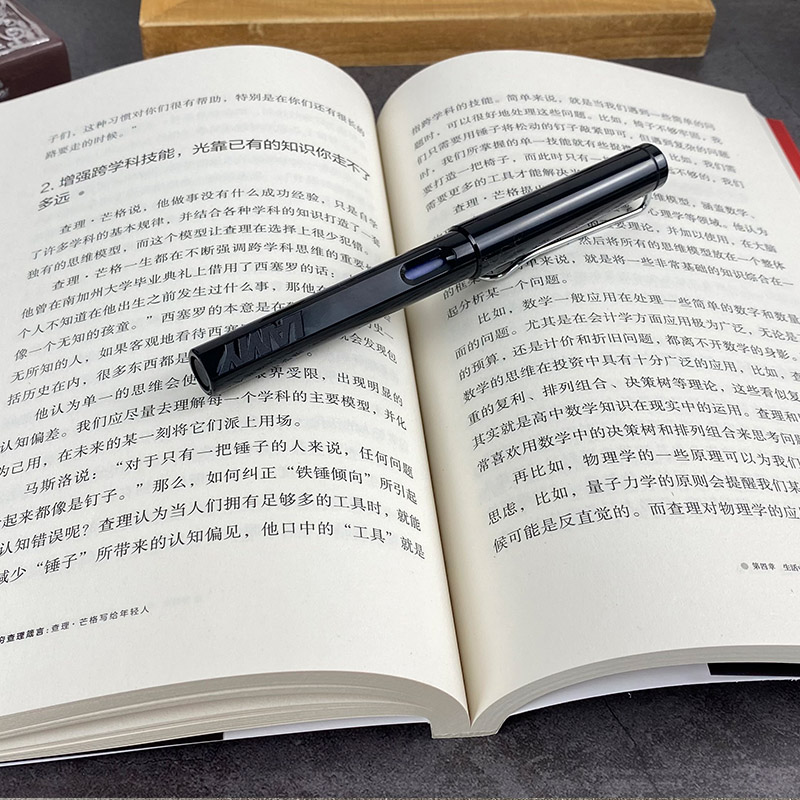 子们，这种习惯对你们很有帮助，特别是在你们还有很长的
路要走的时候。”
2. 增强跨学科技能，光靠已有的知识你走不了
多远
查理·芒格说，他做事没有什么成功经验，只是自学
了许多学科的基本规律，并结合各种学科的知识打造了一套
独有的思维模型，而这个模型让查理在选择上很少犯错。
查理·芒格一生都在不断强调跨学科思维的重要
他曾在南加州大学毕业典礼上借用了西塞罗的话：
个人不知道在他出生之前发生过什么事，那他在
像一个无知的孩童。”西塞罗的本意是在
无所知的人，如果客观地看待西塞 就会发现包
括历史在内，很多东西都是
他认为单一的思维会使 眼界受限，出现明显的
认知偏差。我们应尽量去理解每一个学科的主要模型，并化
为己用，在未来的某一刻将它们派上用场。
马斯洛说：“对于只有一把锤子的人来说，任何问题
起来都像是钉子。”那么，如何纠正“铁锤倾向”所引起
认知错误呢？查理认为当人们拥有足够多的工具时，就能
减少“锤子”所带来的认知偏见，他口中的“工具”就是
的查理箴言：查理·芒格写给年轻人
指跨学科的技能。简单来说，就是当我们遇到一些简单的问
题时，可以很好地处理这些问题。比如，椅子不够牢固，我
们只需要用锤子将松动的钉子敲紧即可，但遇到复杂的问题
时，我们所掌握的单一技能就有些捉 比如，我们需
要打造一把椅子，而此时只有一 不够的，我们
需要更多的工具才能解决
查理·芒格提 思维模型，涵盖数学、
心理学等领域。他认为
要理论，并加以使用，在大脑
然后将所有的思维模型放在一个整体
的框 单来说，就是将一些非常基础的知识综合在一
起分析某一个问题。
比如，数学一般应用在处理一些简单的数字和数量
面的问题。尤其是在会计学方面应用极为广泛，无论是
的预算，还是计价和折旧问题，都离不开数学的身影。
数学的思维在投资中具有十分广泛的应用，比如，查
重的复利、排列组合、决策树等理论，这些看似复
其实就是高中数学知识在现实中的运用。查理和
常喜欢用数学中的决策树和排列组合来思考问题
再比如，物理学的一些原理可以为我们
思虑，比如，量子力学的原则会提醒我们某
候可能是反直觉的。而查理对物理学的应
第四章 生活
LAMY